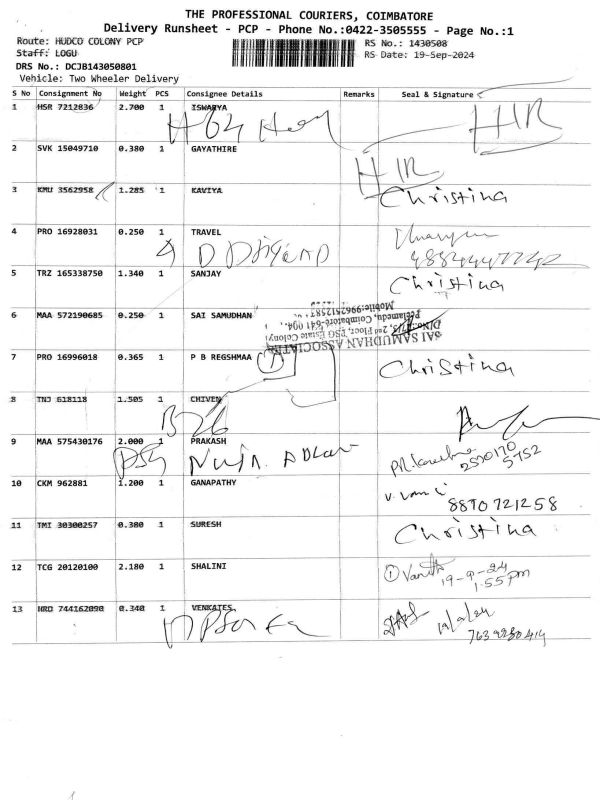 THE PROFESSIONAL COURIERS, COIMBATORE
Delivery Runsheet - PCP - Phone No.:0422-3505555 - Page No.:1
Route: HUDCO COLONY PCP RS No.: 1430508
Staff: LOGU RS Date: 19-Sep-2024
DRS No.: DCJB143050801
Vehicle: Two Wheeler Delivery
S No Consignment No Weight PCS Consignee Details Remarks Seal & Signature
1 HSR 7212836 2.700 1 ISWARYA
2 SVK 15049710 0.380 1 GAYATHIRE
3 KMU 3562958 1.285 1 KAVIYA Christina
4 PRO 16928031 0.250 1 TRAVEL
5 TRZ 165338750 1.340 1 SANJAY Christina
6 MAA 572190685 0.250 1 SAI SAMUDHAN
SAI SAMUDHAN ASSOCIATES
2nd Floor, PSG Estate Colony
Peelamedu, Coimbatore-641 004.
7 PRO 16996018 0.365 1 P B REGSHMAA 1 Christina
8 TNJ 618118 1.505 1 CHIVEN
B26
9 MAA 575430176 2.000 1 PRAKASH
2590170
5752
10 CKM 962881 1.200 1 GANAPATHY
8870721258
11 TMI 30300257 0.380 1 SURESH Christina
12 TCG 20120100 2.180 1 SHALINI
19-9-24
1.55pm
13 NRO 744162090 0.340 1 VENKATES
19/9/24